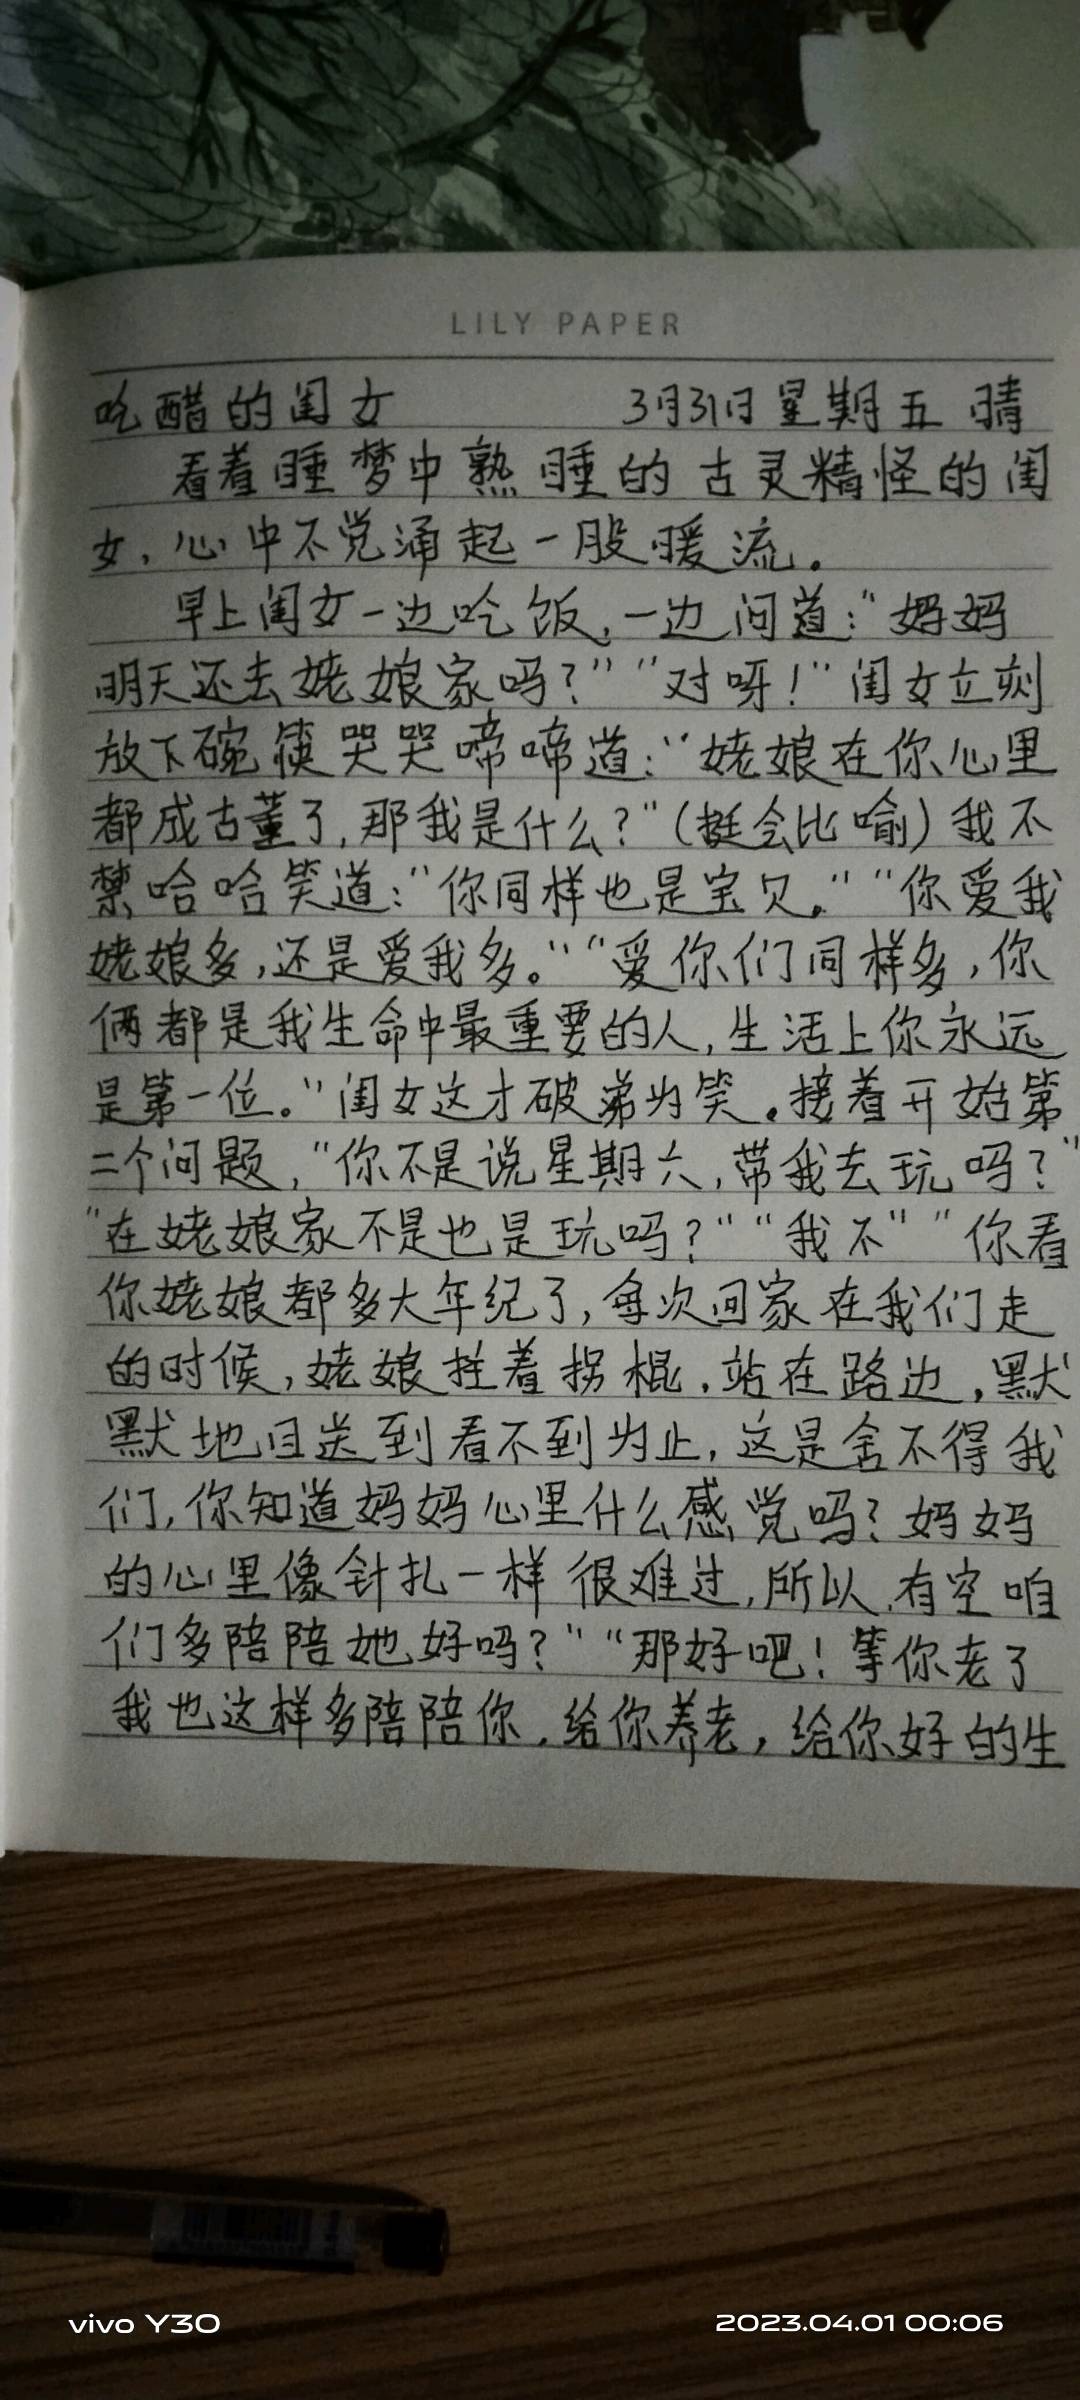 LILY PAPER
吃醋的闺女 3月31日 星期五 晴
看着睡梦中熟睡的古灵精怪的闺
女，心中不觉涌起一股暖流。
早上闺女一边吃饭，一边问道：“妈妈
明天还去姥娘家吗？”“对呀！”闺女立刻
放下碗筷哭哭啼啼道：“姥娘在你心里
都成古董了，那我是什么？”（挺会比喻）我不
禁哈哈笑道：“你同样也是宝贝。”“你爱我
姥娘多，还是爱我多。”“爱你们同样多，你
俩都是我生命中最重要的人，生活上你永远
是第一位。”闺女这才破涕为笑。接着开始第
二个问题，“你不是说星期六，带我去玩吗？”
“在姥娘家不是也是玩吗？”“我不”“你看
你姥娘都多大年纪了，每次回家在我们走
的时候，姥娘拄着拐棍，站在路边，默
默地目送到看不到为止，这是舍不得我
们，你知道妈妈心里什么感觉吗？妈妈
的心里像针扎一样很难过，所以，有空咱
们多陪陪她好吗？”“那好吧！等你老了
我也这样多陪陪你，给你养老，给你好的生
vivo Y30
2023.04.01 00:06